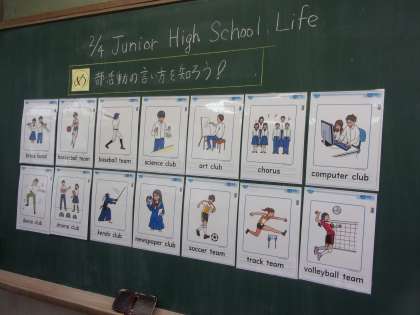 2/4 Junior High School Life
め 部活動の言い方を知ろう!
brass band
basketball team
baseball team
science club
art club
chorus
computer club
dance club
drama club
kendo club
newspaper club
soccer team
track team
volleyball team